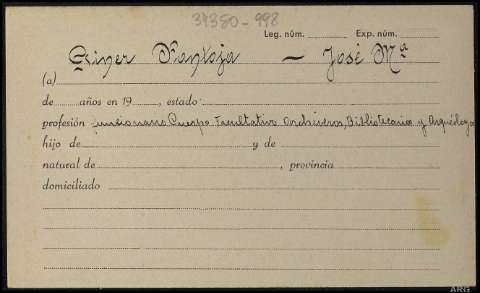 34380-998
Leg. núm. Exp. núm.
Giner Pantoja — José Mª
(a)
de años en 19 , estado
profesión funcionario Cuerpo Facultativo Archiveros, Bibliotecarios y Arqueólogos
hijo de y de
natural de , provincia
domiciliado
ARG